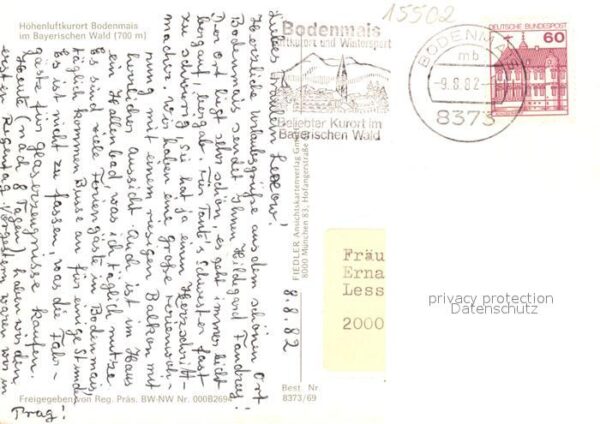 Höhenluftkurort Bodenmais
im Bayerischen Wald (700 m)
15502
Bodenmais
Luftkurort und Wintersport
Beliebter Kurort im
Bayerischen Wald
BODENMAIS
mb
-9.8.82-
8373
DEUTSCHE BUNDESPOST
60
Liebes Fräulein
Herzliche Urlaubsgrüße aus dem schönen
Bodenmais sendet Ihnen Hildegard
Der Ort liegt sehr schön, es geht immer leicht
bergauf, bergab. Für Tante's Schwester fast
zu schwierig, sie hat ja einen Herzschritt-
macher. Wir haben eine große Ferienwoh-
nung mit einem riesigen Balkon mit
herrlicher Aussicht. Auch ist im Haus
ein Hallenbad, was ich täglich nutze.
Es sind viele Feriengäste in Bodenmais,
täglich kommen Busse an für einige Stunden
Es ist nicht zu fassen, was die Fahr-
gäste für Glaserzeugnisse kaufen.
Heute (nach 8 Tagen) haben wir den
ersten Regentag. Vorgestern waren wir in
Prag!
8.8.82
FIEDLER Ansichtskartenverlag
8000 München 83, Hofangerstraße
Fräu
Erna
Less
2000
privacy protection
Datenschutz
Best. Nr.
8373/69
Freigegeben von Reg. Präs. BW-NW Nr. 000B2694